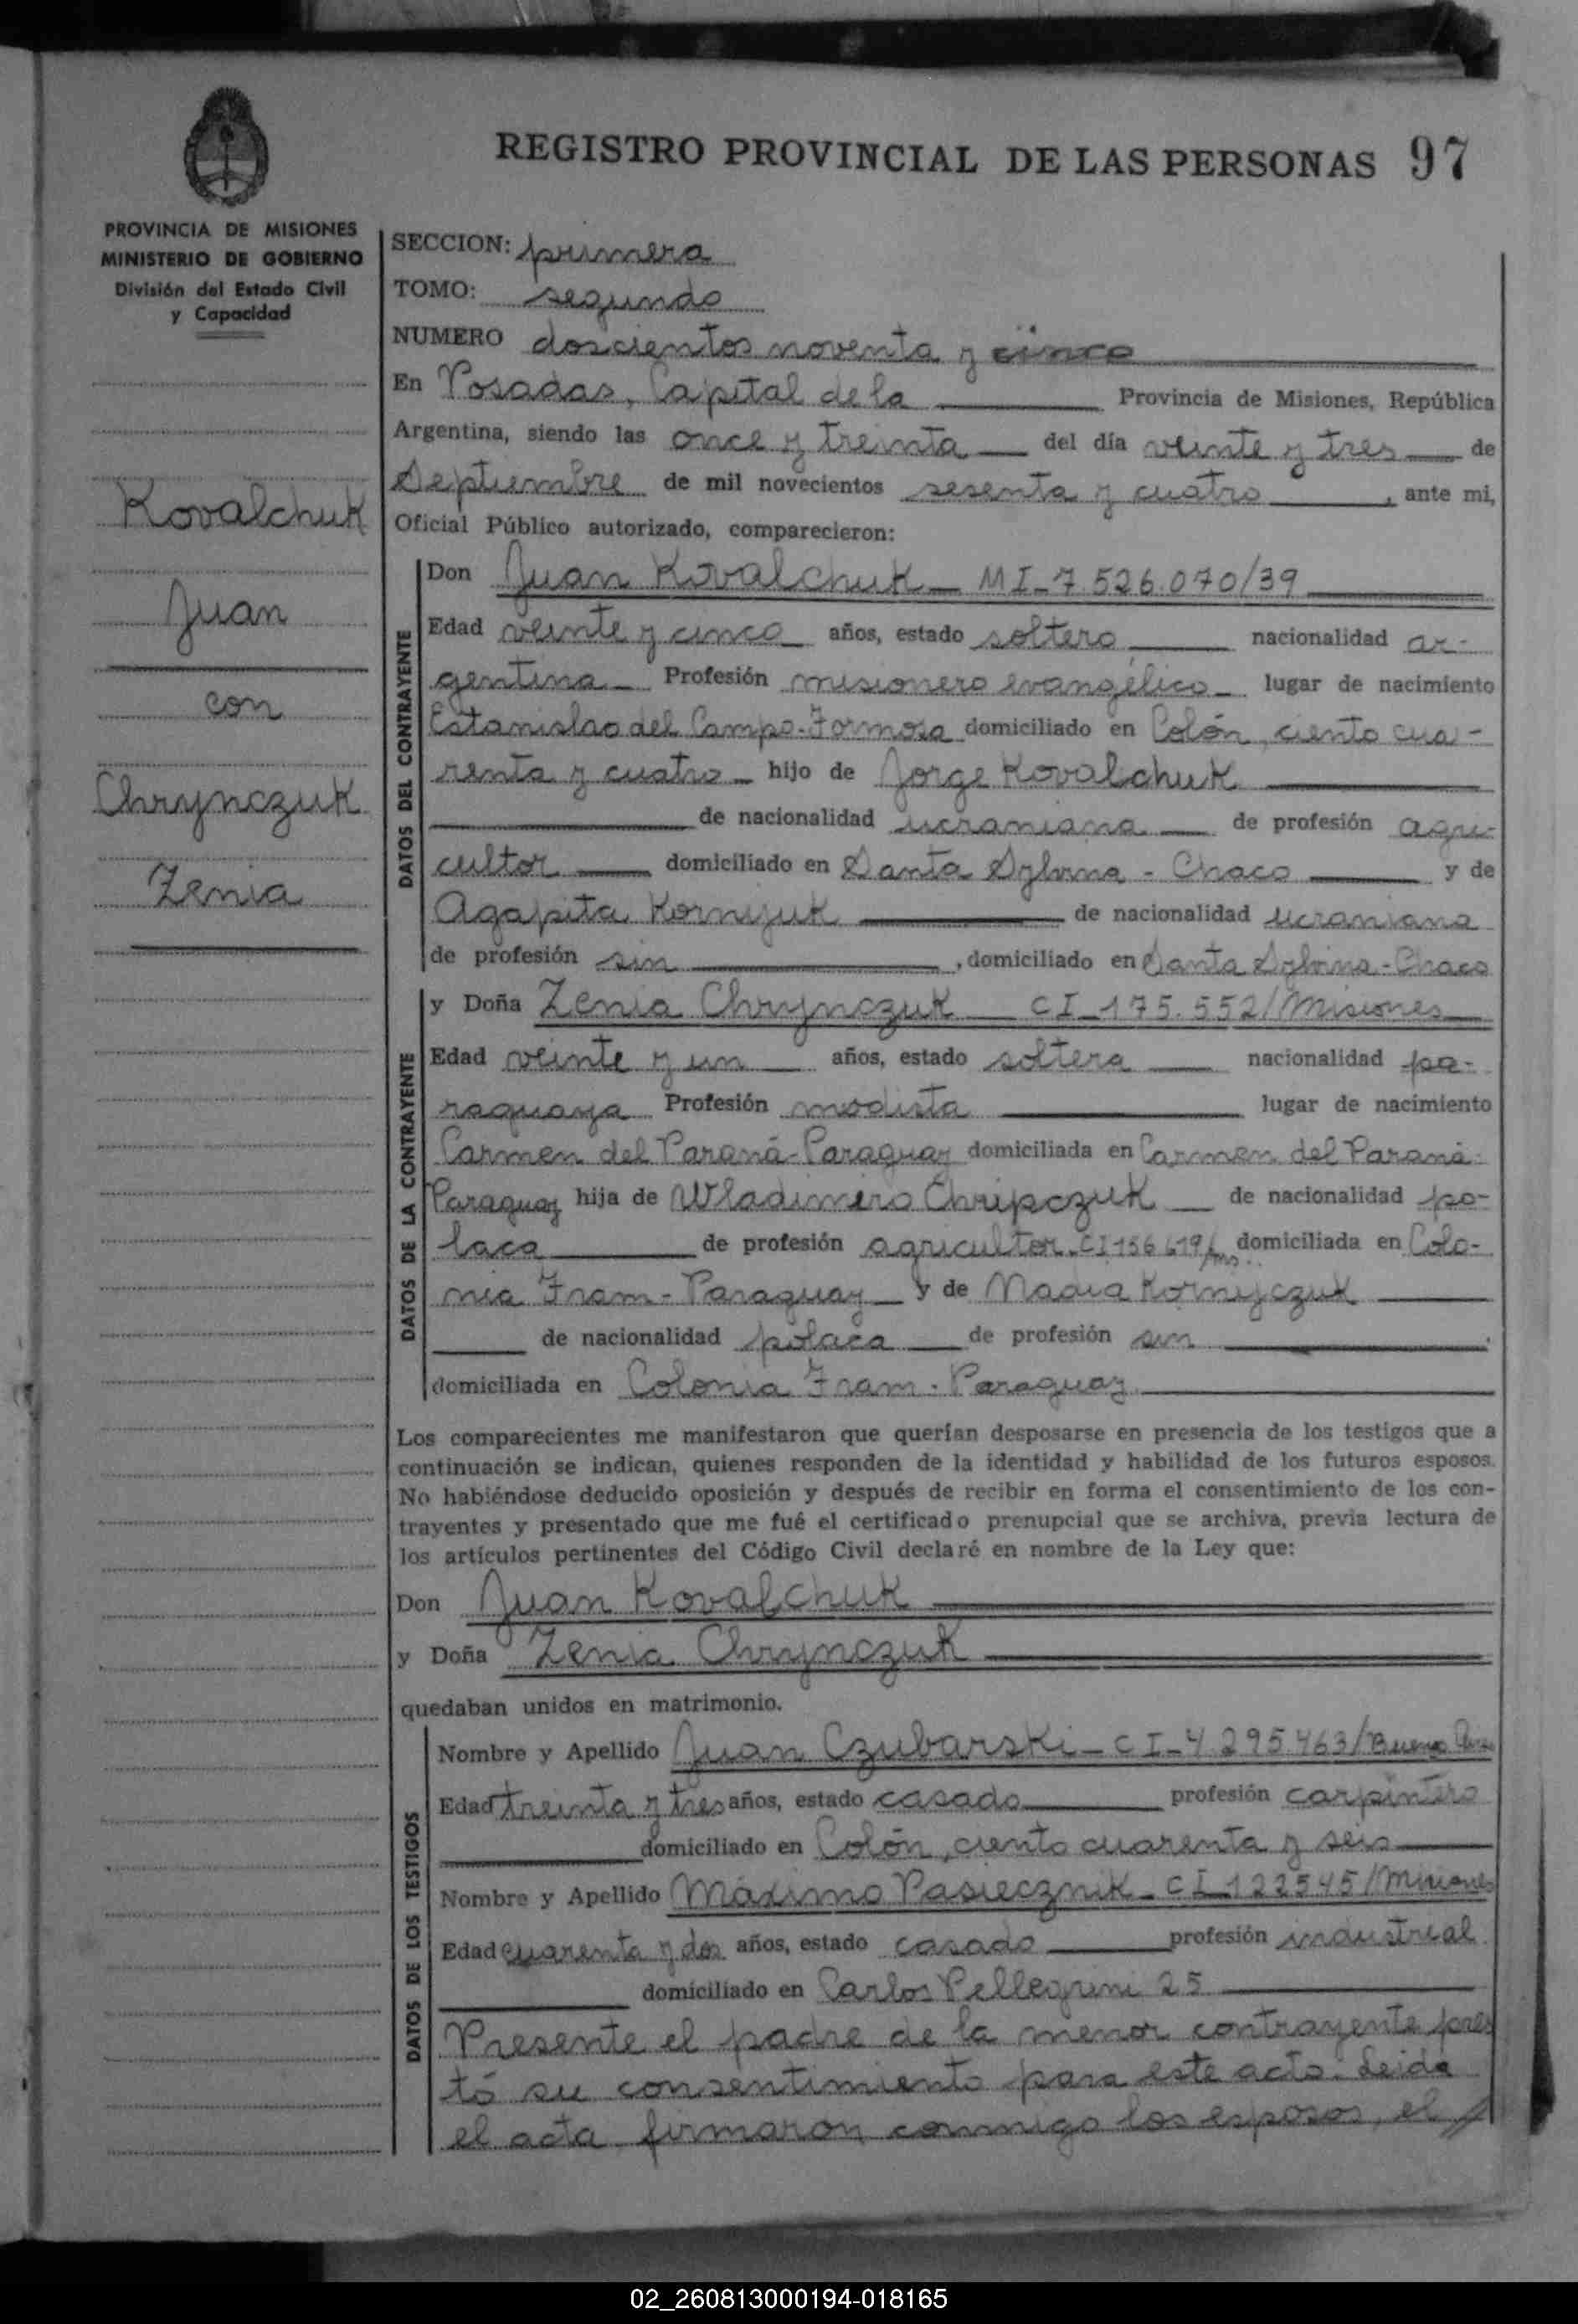 REGISTRO PROVINCIAL DE LAS PERSONAS 97
PROVINCIA DE MISIONES
MINISTERIO DE GOBIERNO
División del Estado Civil
y Capacidad
Kovalchuk
Juan
con
Chrynczuk
Zenia
SECCION: primera
TOMO: segundo
NUMERO doscientos noventa y cinco
En Posadas, Capital de la Provincia de Misiones, República
Argentina, siendo las once y treinta del día veinte y tres de
Septiembre de mil novecientos sesenta y cuatro, ante mi,
Oficial Público autorizado, comparecieron:
DATOS DEL CONTRAYENTE
Don Juan Kovalchuk - MI-7.526.070/39
Edad veinte y cinco años, estado soltero nacionalidad ar-
gentina Profesión misionero evangélico lugar de nacimiento
Estanislao del Campo-Formosa domiciliado en Colón, ciento cua-
renta y cuatro hijo de Jorge Kovalchuk
de nacionalidad ucraniana de profesión agri-
cultor domiciliado en Santa Sylvina - Chaco y de
Agapita Kornijuk de nacionalidad ucraniana
de profesión sin, domiciliado en Santa Sylvina-Chaco
DATOS DE LA CONTRAYENTE
y Doña Zenia Chrynczuk CI-175.552/Misiones
Edad veinte y un años, estado soltera nacionalidad pa-
raguaya Profesión modista lugar de nacimiento
Carmen del Paraná-Paraguay domiciliada en Carmen del Paraná-
Paraguay hija de Wladimiro Chripczuk de nacionalidad po-
laca de profesión agricultor-CI 156.619/ms. domiciliada en Colo-
nia Fram-Paraguay y de Nadia Kornijczuk
de nacionalidad polaca de profesión sin
domiciliada en Colonia Fram-Paraguay
Los comparecientes me manifestaron que querían desposarse en presencia de los testigos que a
continuación se indican, quienes responden de la identidad y habilidad de los futuros esposos.
No habiéndose deducido oposición y después de recibir en forma el consentimiento de los con-
trayentes y presentado que me fué el certificado prenupcial que se archiva, previa lectura de
los artículos pertinentes del Código Civil declaré en nombre de la Ley que:
Don Juan Kovalchuk
y Doña Zenia Chrynczuk
quedaban unidos en matrimonio.
DATOS DE LOS TESTIGOS
Nombre y Apellido Juan Czubarski-CI-4.295.463/Buenos Aires
Edad treinta y tres años, estado casado profesión carpintero
domiciliado en Colón, ciento cuarenta y seis
Nombre y Apellido Máximo Pasiecznik-CI-122545/Misiones
Edad cuarenta y dos años, estado casado profesión industrial
domiciliado en Carlos Pellegrini 25
Presente el padre de la menor contrayente pres
tó su consentimiento para este acto. Leída
el acta firmaron conmigo los esposos, el
02_260813000194-018165